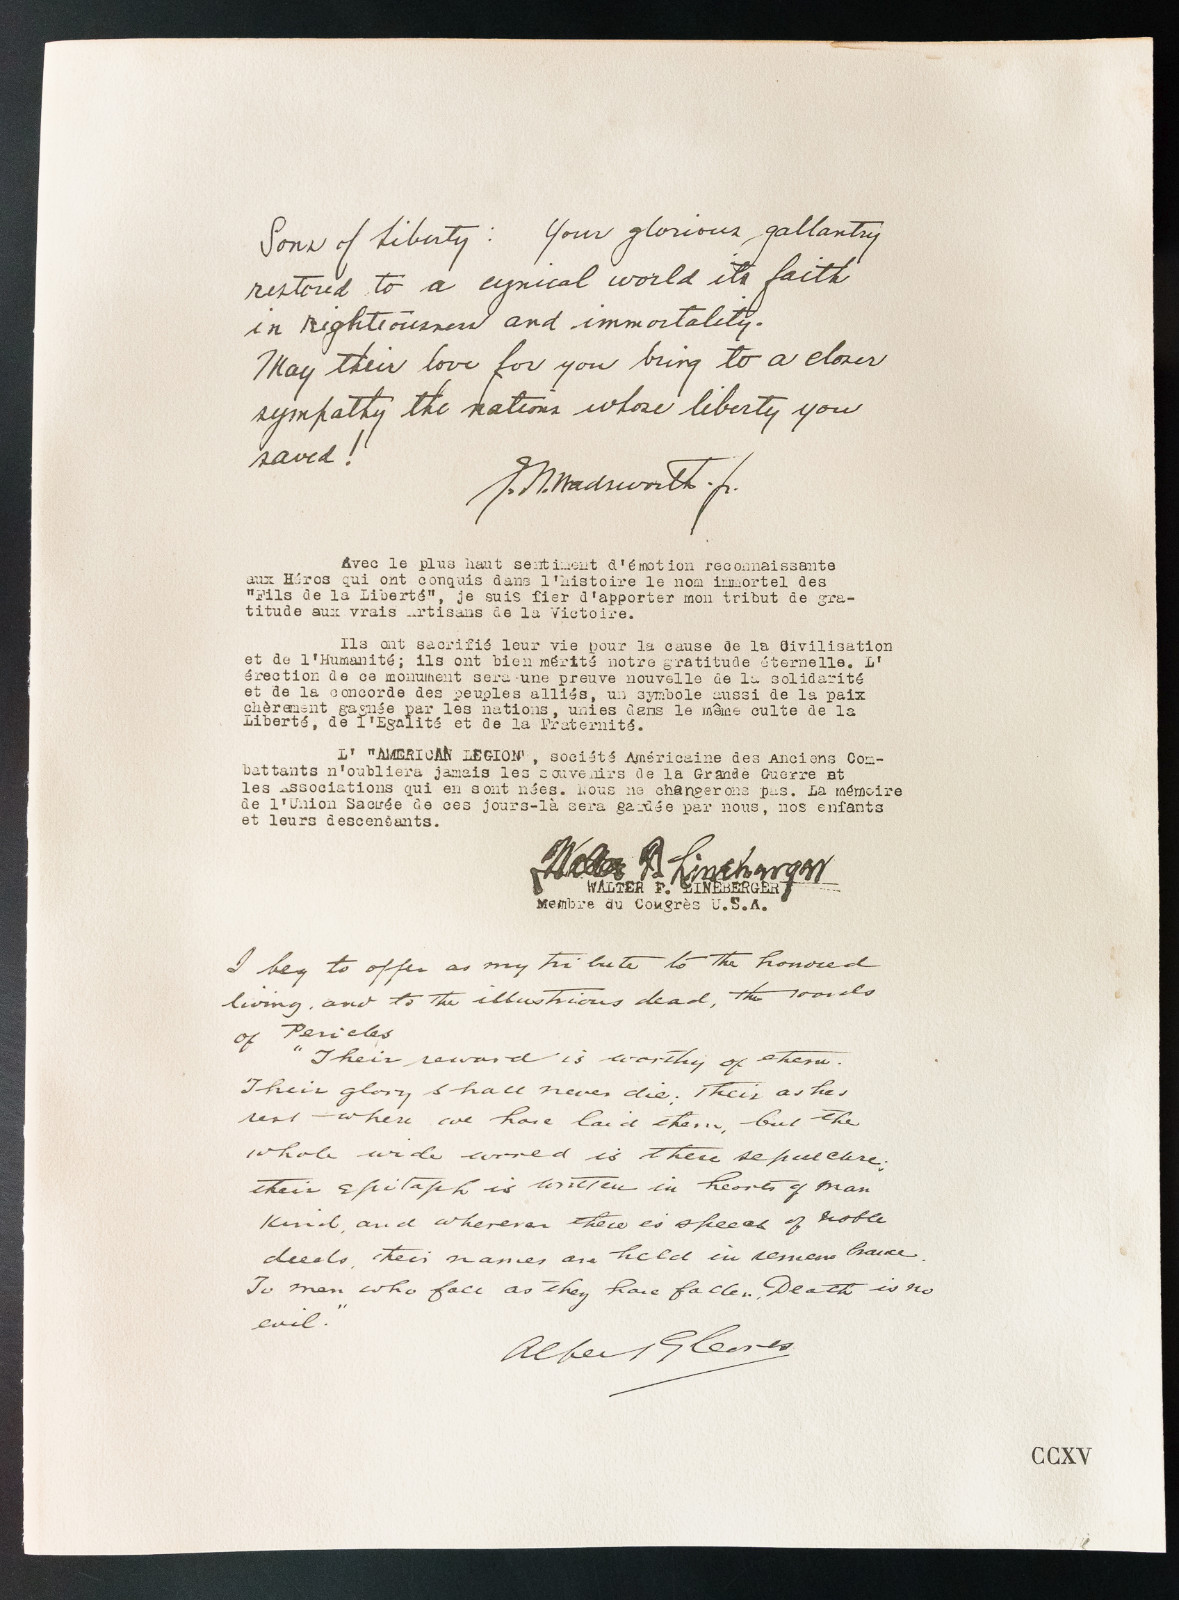 Sons of Liberty: Your glorious gallantry
restored to a cynical world its faith
in righteousness and immortality.
May their love for you bring to a closer
sympathy the nations whose liberty you
saved!
J. W. Wadsworth. jr.
Avec le plus haut sentiment d'émotion reconnaissante
aux Héros qui ont conquis dans l'histoire le nom immortel des
"Fils de la Liberté", je suis fier d'apporter mon tribut de gra-
titude aux vrais artisans de la Victoire.
Ils ont sacrifié leur vie pour la cause de la Civilisation
et de l'Humanité; ils ont bien mérité notre gratitude éternelle. L'
érection de ce monument sera une preuve nouvelle de la solidarité
et de la concorde des peuples alliés, un symbole aussi de la paix
chèrement gagnée par les nations, unies dans le même culte de la
Liberté, de l'Egalité et de la Fraternité.
L' "AMERICAN LEGION", société Américaine des Anciens Com-
battants n'oubliera jamais les souvenirs de la Grande Guerre et
les Associations qui en sont nées. Nous ne changerons pas. La mémoire
de l'Union Sacrée de ces jours-là sera gardée par nous, nos enfants
et leurs descendants.
Walter F. Lineberger
WALTER F. LINEBERGER
Membre du Congrès U.S.A.
I beg to offer as my tribute to the honored
living, and to the illustrious dead, the words
of Pericles
"Their reward is worthy of them.
Their glory shall never die; their ashes
rest where we have laid them, but the
whole wide world is their sepulchre;
their epitaph is written in hearts of man
kind, and wherever there is speech of noble
deeds, their names are held in remembrance.
To men who fall as they have fallen, Death is no
evil."
Albert Gleaves
CCXV